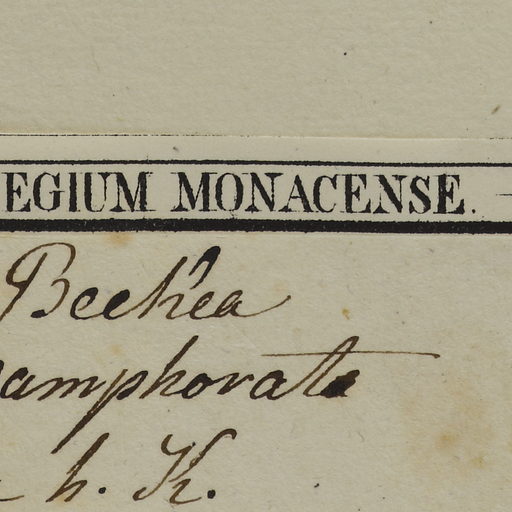 EGIUM MONACENSE.
Beckea
amphorata
h. K.